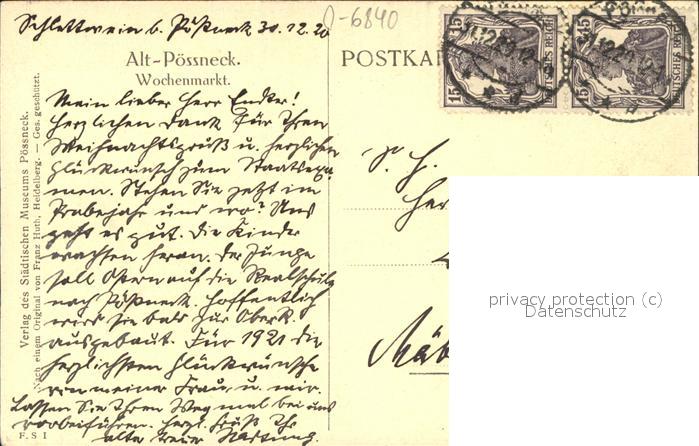 Schlettwein b. Pößneck 30.12.20
D-6840
Alt-Pössneck.
Wochenmarkt.
POSTKA
15
15
DEUTSCHES REICH
Verlag des Städtischen Museums Pössneck.
Nach einem Original von Franz Huth, Heidelberg. — Ges. geschützt.
Mein lieber Herr Endter!
Herzlichen Dank für Ihren
Weihnachtsgruß u. herzlichen
Glückwunsch zum Staatsexa-
men. Stehen Sie jetzt im
Probejahr und wo? Uns
geht es gut. Die Kinder
wachsen heran. Der Junge
soll Ostern auf die Realschule
nach Pößneck. Hoffentlich
wird sie bald zur Oberk.
ausgebaut. Für 1921 die
herzlichsten Glückwünsche
von meiner Frau u. mir.
Lassen Sie Ihren Weg mal bei uns
vorbeiführen. Herzl. Gruß Ihr
alter treuer Hartung.
F. S. I
S. H.
Her
privacy protection (c)
Datenschutz